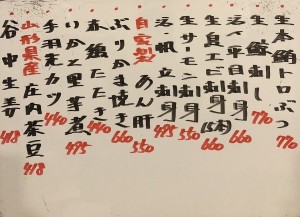 生本鮪トロぶつ 770
生 鯖刺し 770
活〆平目刺身 660
生真エビ刺身 (5本) 660
生サーモン刺身 550
活・帆立刺身 495
自家製 あん肝 550
ぶりかま焼き 660
赤鶏たたき 440
りかと里芋煮 495
手羽元カツ 440
山形県産 庄内茶豆 418
谷中生姜 418